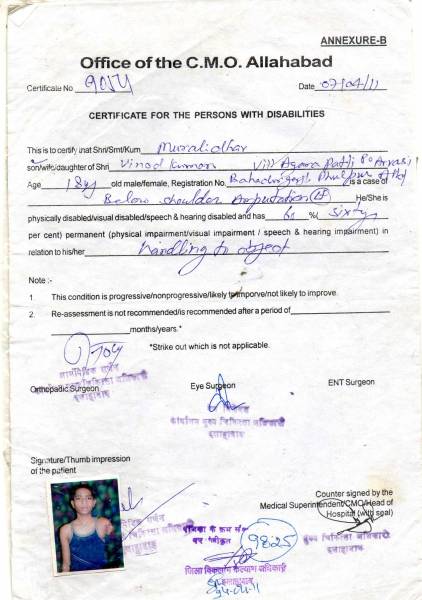 ANNEXURE-B
Office of the C.M.O. Allahabad
Certificate No. 9054 Date 07/04/11
CERTIFICATE FOR THE PERSONS WITH DISABILITIES
This is to certify that Shri/Smt/Kum Muralidhar
son/wife/daughter of Shri Vinod Kumar Vill Agara Patti Po
Age 18 yr old male/female, Registration No. is a case of
Below shoulder Amputation He/She is
physically disabled/visual disabled/speech & hearing disabled and has 60 %( Sixty
per cent) permanent (physical impairment/visual impairment / speech & hearing impairment) in
relation to his/her handling to object
Note :-
1. This condition is progressive/nonprogressive/likely to imporve/not likely to improve.
2. Re-assessment is not recommended/is recommended after a period of
months/years.*
*Strike out which is not applicable.
Orthopadic Surgeon Eye Surgeon ENT Surgeon
मुख्य चिकित्सा अधिकारी
इलाहाबाद
Signature/Thumb impression
of the patient
Counter signed by the
Medical Superintendent/CMO/Head of
Hospital (with seal)
9825
मुख्य चिकित्सा अधिकारी
इलाहाबाद
जिला विकलांग कल्याण अधिकारी
इलाहाबाद